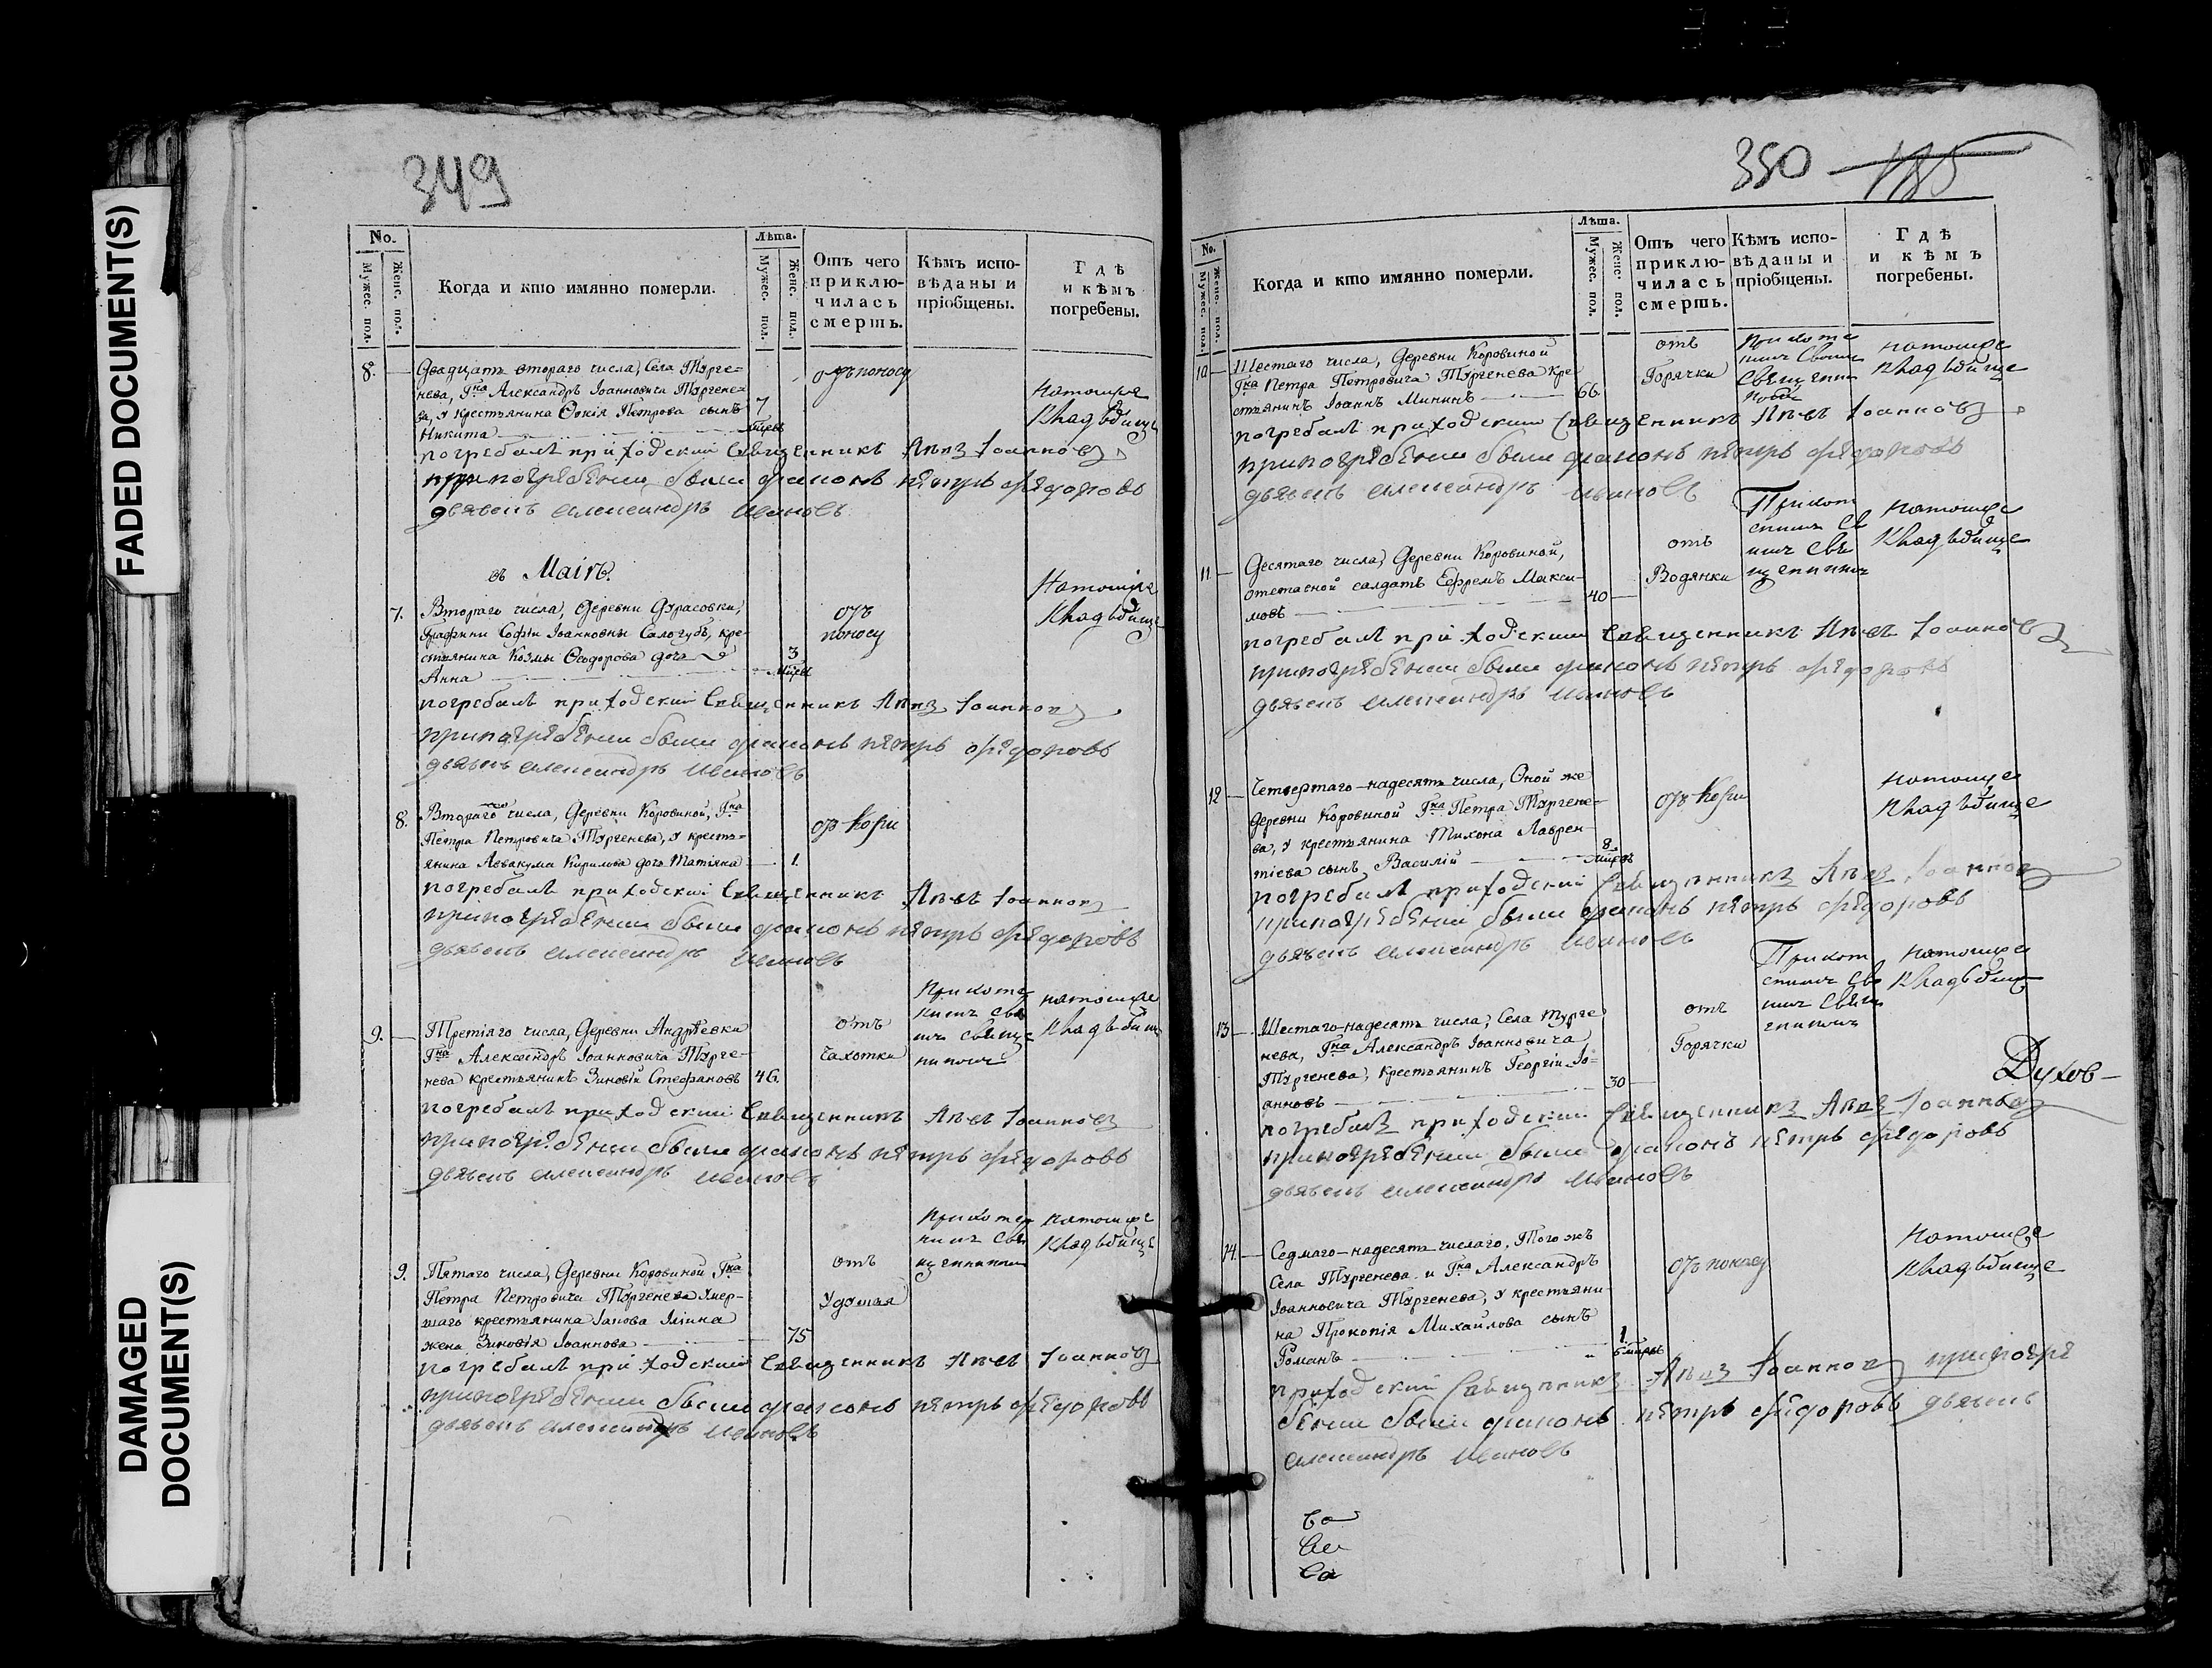 FADED DOCUMENT(S)
DAMAGED
DOCUMENT(S)
349
No.
Мужес. пол.
Женс. пол.
Когда и кто имянно померли.
Лѣта.
Мужес. пол.
Женс. пол.
Отъ чего
приклю-
чилась
смерть.
Кѣмъ испо-
вѣданы и
пріобщены.
Гдѣ
и кѣмъ
погребены.
8.
Двадцать втораго числа, Села Турге=
нева, Гна Александръ Іоанновича Тургене=
ва, у крестьянина Фокія Петрова сынъ
Никита
7
отъ поносу
натомже
кладбище
погребалъ приходский Священникъ Левъ Іоанновъ
припогребении были диаконъ петръ федоровъ
дьячекъ александръ ивановъ
въ Маіѣ.
7.
Втораго числа, деревни Дурасовки,
Графини Софіи Іоанновны Салогубъ, кре-
стьянина Козмы Феодорова дочь
Анна
3
отъ
поносу
Натомже
кладбище
погребалъ приходский Священникъ Левъ Іоанновъ
припогребении были диаконъ петръ федоровъ
дьячекъ александръ ивановъ
8.
Втораго числа, деревни Коровиной, Гна
Петра Петровича Тургенева, у кресть-
янина Аввакума Кирилова дочь Татіяна
1.
отъ кори
погребалъ приходский Священникъ Левъ Іоанновъ
припогребении были диаконъ петръ федоровъ
дьячекъ александръ ивановъ
9.
Третіяго числа, деревни Андрѣевки
Гна Александръ Іоанновича Турге-
нева крестьянинъ Зиновій Стефановъ
46.
отъ
чахотки
натомже
кладбище
погребалъ приходский Священникъ Левъ Іоанновъ
припогребении были диаконъ петръ федоровъ
дьячекъ александръ ивановъ
9.
Пятаго числа, деревни Коровиной, Гна
Петра Петровича Тургенева умер-
шаго крестьянина Іакова Іліина
жена Зиновія Іоаннова
75
отъ
удошья
натомже
кладбище
погребалъ приходский Священникъ Левъ Іоанновъ
припогребении были диаконъ петръ федоровъ
дьячекъ александръ ивановъ
350
185
No.
Мужес. пол.
Женс. пол.
Когда и кто имянно померли.
Лѣта.
Мужес. пол.
Женс. пол.
Отъ чего
приклю-
чилась
смерть.
Кѣмъ испо-
вѣданы и
пріобщены.
Гдѣ
и кѣмъ
погребены.
10
Шестаго числа, деревни Коровиной
Гна Петра Петровича Тургенева кре
стьянинъ Іоаннъ Мининъ
66.
отъ
Горячки
натомже
кладбище
погребалъ приходский Священникъ Левъ Іоанновъ
припогребении были диаконъ петръ федоровъ
дьячекъ александръ ивановъ
11
Десятаго числа, деревни Коровиной,
отставной салдатъ Ефремъ Макси-
мовъ
40
отъ
Водянки
натомже
кладбище
погребалъ приходский Священникъ Левъ Іоанновъ
припогребении были диаконъ петръ федоровъ
дьячекъ александръ ивановъ
12
Четвертаго-надесять числа, Оной же
деревни Коровиной Гна Петра Тургене-
ва, у крестьянина Тихона Лаврен-
тіева сынъ Василій
8.
отъ кори
натомже
кладбище
погребалъ приходский Священникъ Левъ Іоанновъ
припогребении были диаконъ петръ федоровъ
дьячекъ александръ ивановъ
13
Шестаго-надесять числа, Села Турге
нева, Гна Александръ Іоанновича
Тургенева, крестьянинъ Георгій Іо=
анновъ
30
отъ
Горячки
натомже
кладбище
Духов-
погребалъ приходский Священникъ Левъ Іоанновъ
припогребении были диаконъ петръ федоровъ
дьячекъ александръ ивановъ
14.
Седмаго-надесять числаго, Того жъ
Села Тургенева и Гна Александръ
Іоанновича Тургенева, у крестьяни-
на Прокопія Михайлова сынъ
Романъ
1.
отъ поносу
натомже
кладбище
приходский Священникъ Левъ Іоанновъ припогре
бении были диаконъ петръ федоровъ дьячекъ
александръ ивановъ